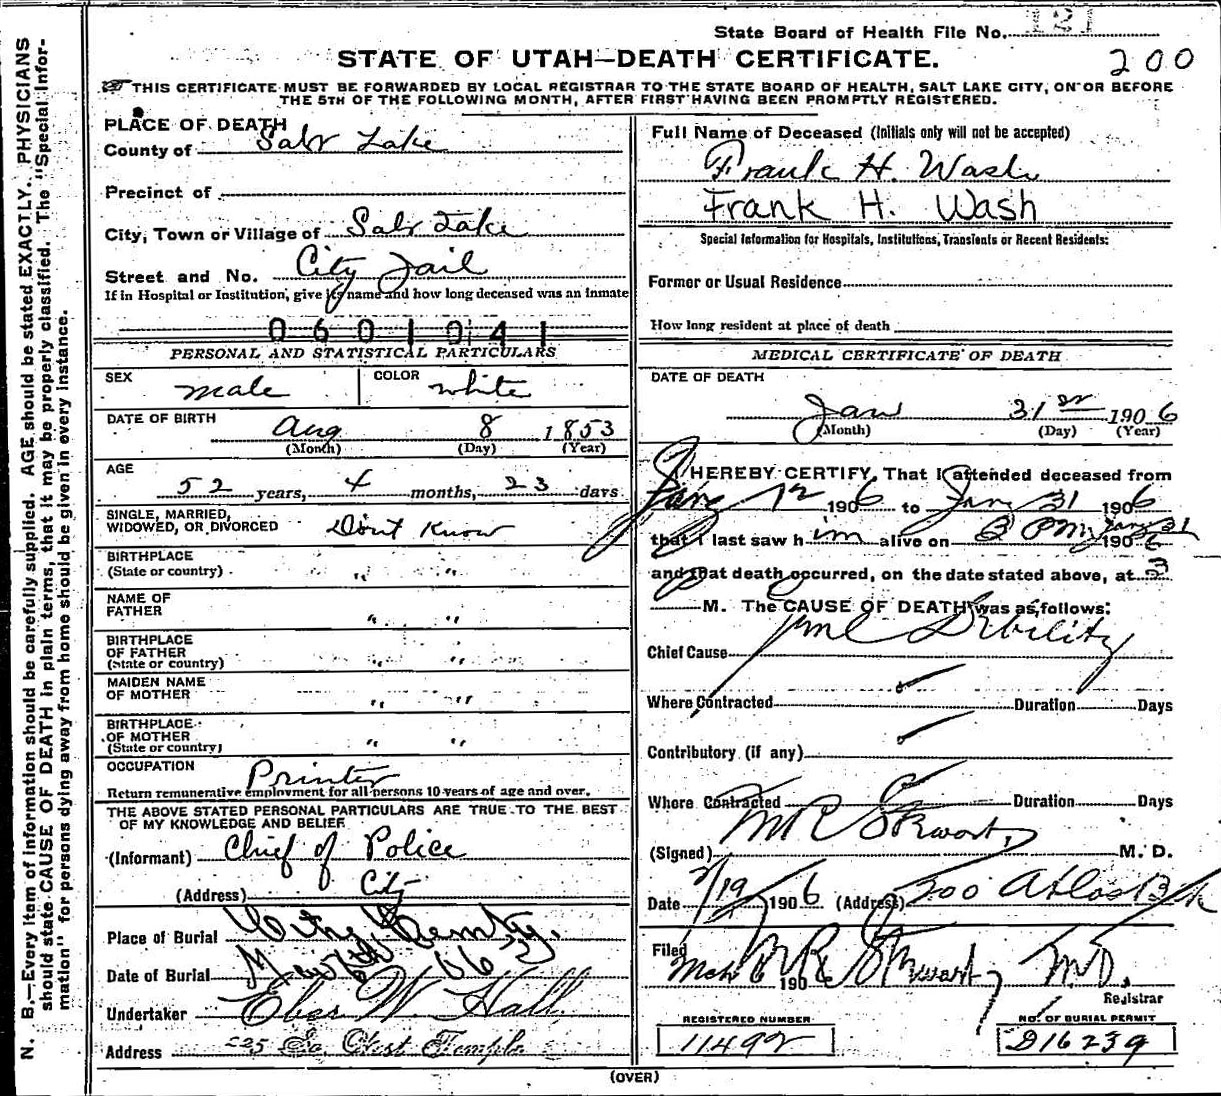 State Board of Health File No. 121
STATE OF UTAH—DEATH CERTIFICATE.
200
THIS CERTIFICATE MUST BE FORWARDED BY LOCAL REGISTRAR TO THE STATE BOARD OF HEALTH, SALT LAKE CITY, ON OR BEFORE
THE 5TH OF THE FOLLOWING MONTH, AFTER FIRST HAVING BEEN PROMPTLY REGISTERED.
N. B.—Every item of information should be carefully supplied. AGE should be stated EXACTLY. PHYSICIANS
should state CAUSE OF DEATH in plain terms, that it may be properly classified. The "Special Infor-
mation" for persons dying away from home should be given in every instance.
PLACE OF DEATH
County of Salt Lake
Precinct of
City, Town or Village of Salt Lake
Street and No. City Jail
If in Hospital or Institution, give its name and how long deceased was an inmate
0601041
PERSONAL AND STATISTICAL PARTICULARS
SEX male COLOR white
DATE OF BIRTH Aug 8 1853
(Month) (Day) (Year)
AGE
52 years, 4 months, 23 days
SINGLE, MARRIED,
WIDOWED, OR DIVORCED Don't Know
BIRTHPLACE
(State or country) " "
NAME OF
FATHER " "
BIRTHPLACE
OF FATHER
(State or country) " "
MAIDEN NAME
OF MOTHER " "
BIRTHPLACE
OF MOTHER
(State or country) " "
OCCUPATION Printer
Return remunerative employment for all persons 10 years of age and over.
THE ABOVE STATED PERSONAL PARTICULARS ARE TRUE TO THE BEST
OF MY KNOWLEDGE AND BELIEF
(Informant) Chief of Police
(Address) City
Place of Burial City
Date of Burial
Undertaker Eber W. Hall
Address 225 So. West Temple
Full Name of Deceased (Initials only will not be accepted)
Frank H. Wash
Frank H. Wash
Special Information for Hospitals, Institutions, Transients or Recent Residents:
Former or Usual Residence
How long resident at place of death
MEDICAL CERTIFICATE OF DEATH
DATE OF DEATH
Jan 31st 1906
(Month) (Day) (Year)
I HEREBY CERTIFY, That I attended deceased from
Jany 12 1906 to Jany 31 1906
that I last saw him alive on 3 PM Jany 31 1906
and that death occurred, on the date stated above, at 3
M. The CAUSE OF DEATH was as follows:
Chief Cause Debility
Where Contracted Duration Days
Contributory (if any)
Where Contracted Duration Days
(Signed) M R Stewart, M. D.
Date 2/19 1906 (Address) 300 Atlas Blk
Filed Mch 6 1906 M R Stewart, M.D.
Registrar
REGISTERED NUMBER
11492
NO. OF BURIAL PERMIT
D16239
(OVER)